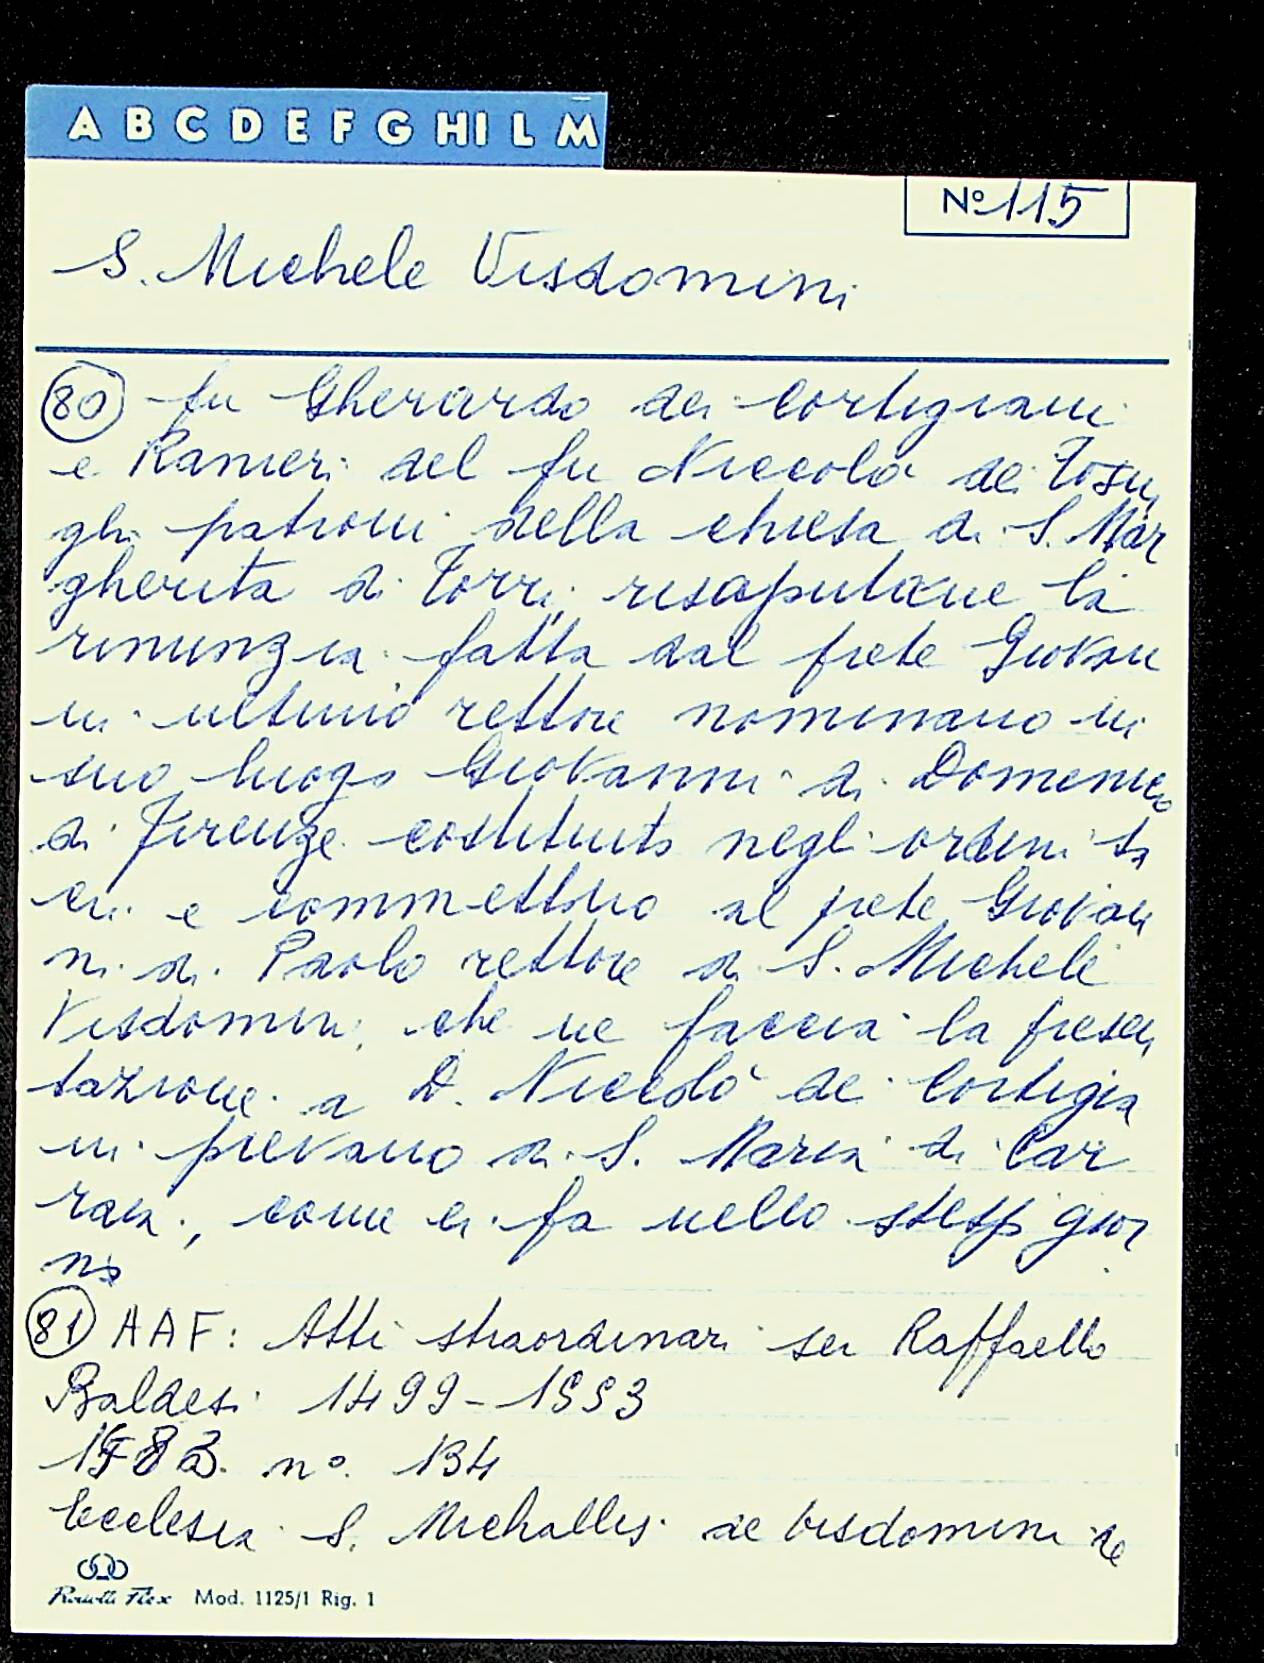 A B C D E F G HI L M
No 115
S. Michele Visdomini
80 fu Gherardo dei Cortigiani
e Ranieri del fu Niccolò dei Tosin
ghi patroni della chiesa di S. Mar
gherita di Torri, risaputane la
rinunzia fatta dal prete Giovan
ni ultimo rettore nominano in
suo luogo Giovanni di Domenico
di Firenze costituito negli ordini sa
cri e commettono al prete Giovan
ni di Paolo rettore di S. Michele
Visdomini che ne faccia la presen
tazione a D. Niccolò dei Cortigia
ni pievano di S. Maria di Car
raia, come ei fa nello stesso gior
no
81 AAF: Atti straordinari ser Raffaello
Baldesi 1499-1553
n°. 134
Ecclesia S. Michallis de bisdomini de
Mod. 1125/1 Rig. 1